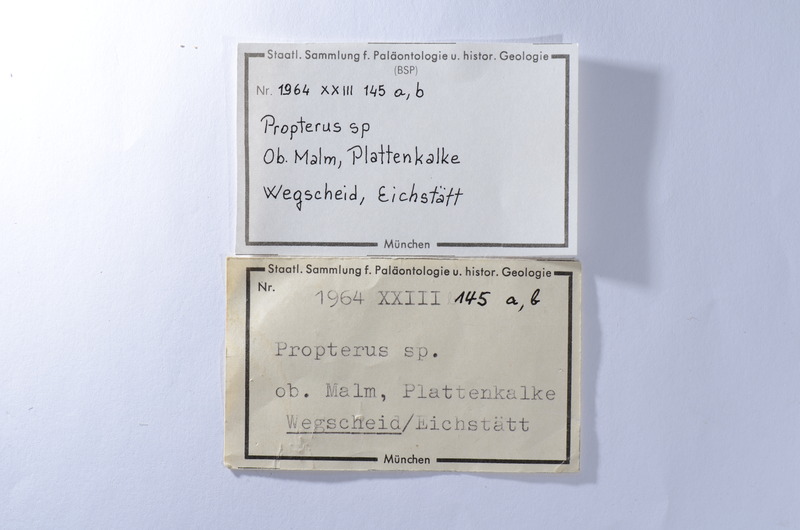 Staatl. Sammlung f. Paläontologie u. histor. Geologie
(BSP)
Nr. 1964 XXIII 145 a, b
Propterus sp
Ob. Malm, Plattenkalke
Wegscheid, Eichstätt
München
Staatl. Sammlung f. Paläontologie u. histor. Geologie
Nr. 1964 XXIII 145 a, b
Propterus sp.
ob. Malm, Plattenkalke
Wegscheid/Eichstätt
München